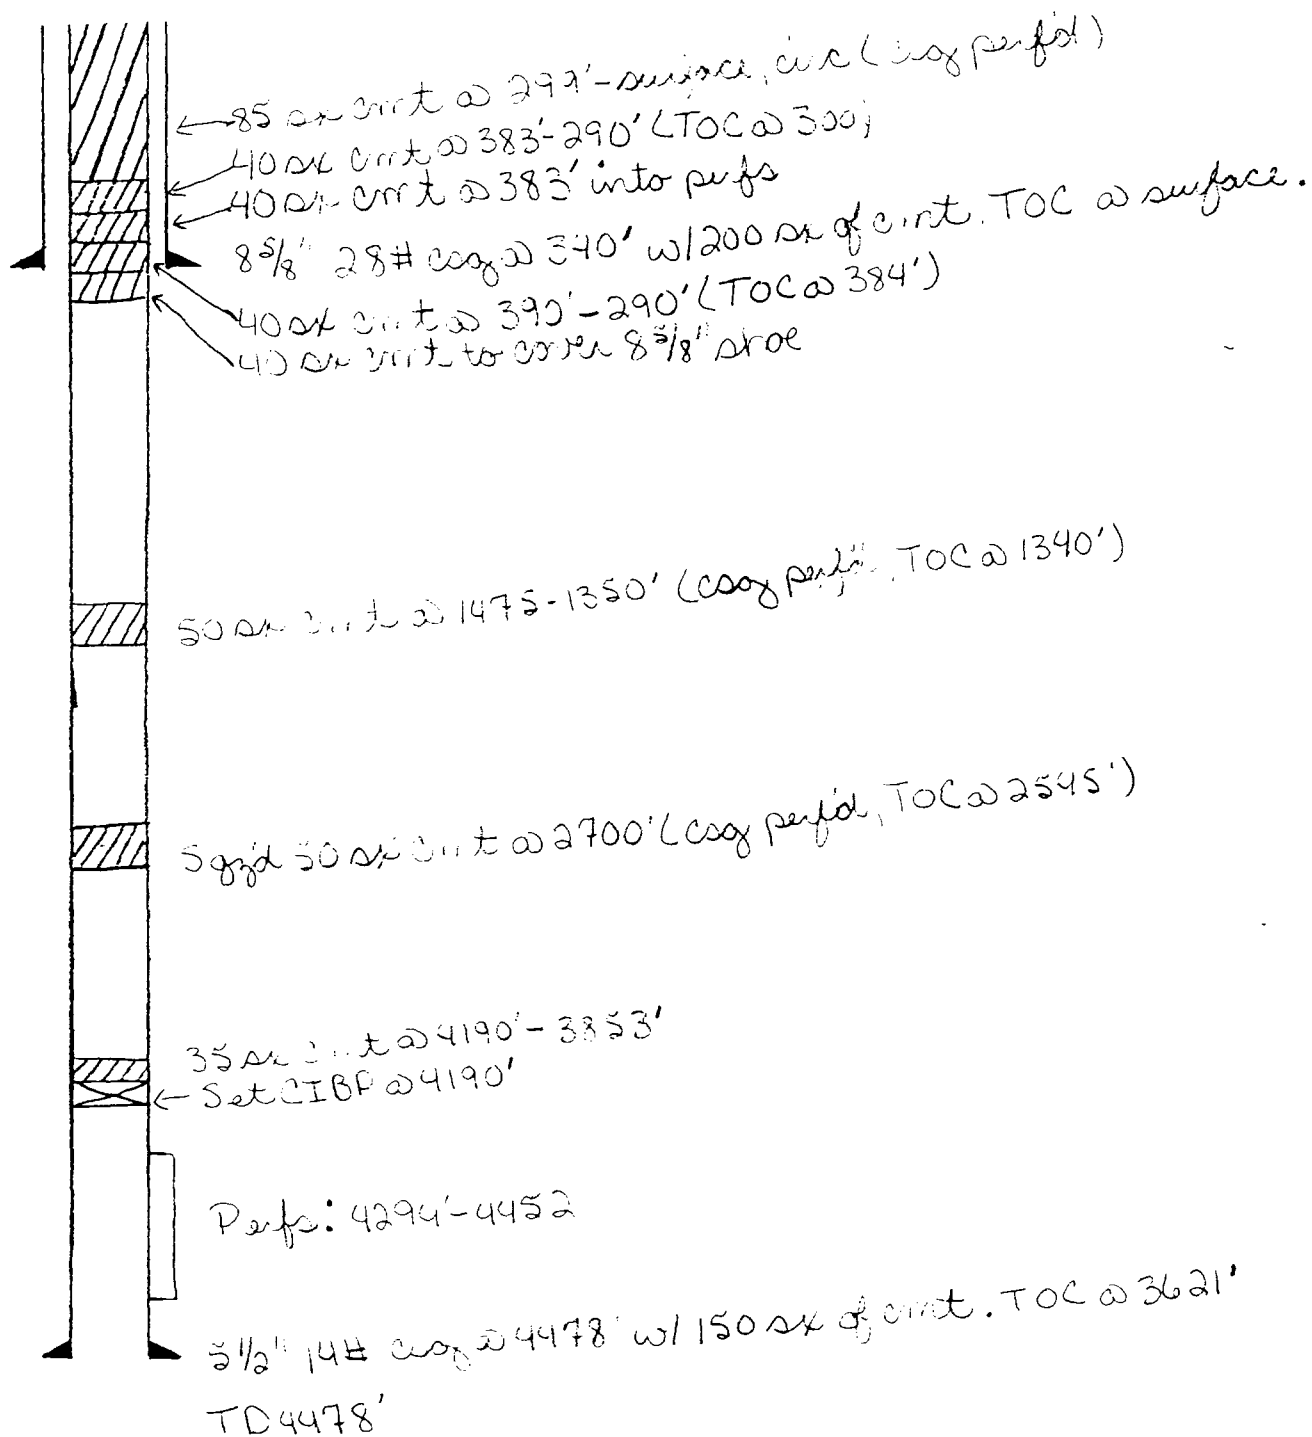 85 sx cmt @ 299'-surface, circ (csg perf'd)
40 sx cmt @ 383'-290' (TOC @ 300')
40 sx cmt @ 383' into perfs
8 5/8" 28# csg @ 340' w/200 sx of cmt. TOC @ surface.
40 sx cmt @ 390'-290' (TOC @ 384')
40 sx cmt to cover 8 5/8" shoe
50 sx cmt @ 1475-1350' (csg perf'd, TOC @ 1340')
Sqz'd 50 sx cmt @ 2700' (csg perf'd, TOC @ 2545')
35 sx cmt @ 4190'-3853'
Set CIBP @ 4190'
Perfs: 4294'-4452
5 1/2" 14# csg @ 4478' w/ 150 sx of cmt. TOC @ 3621'
TD 4478'